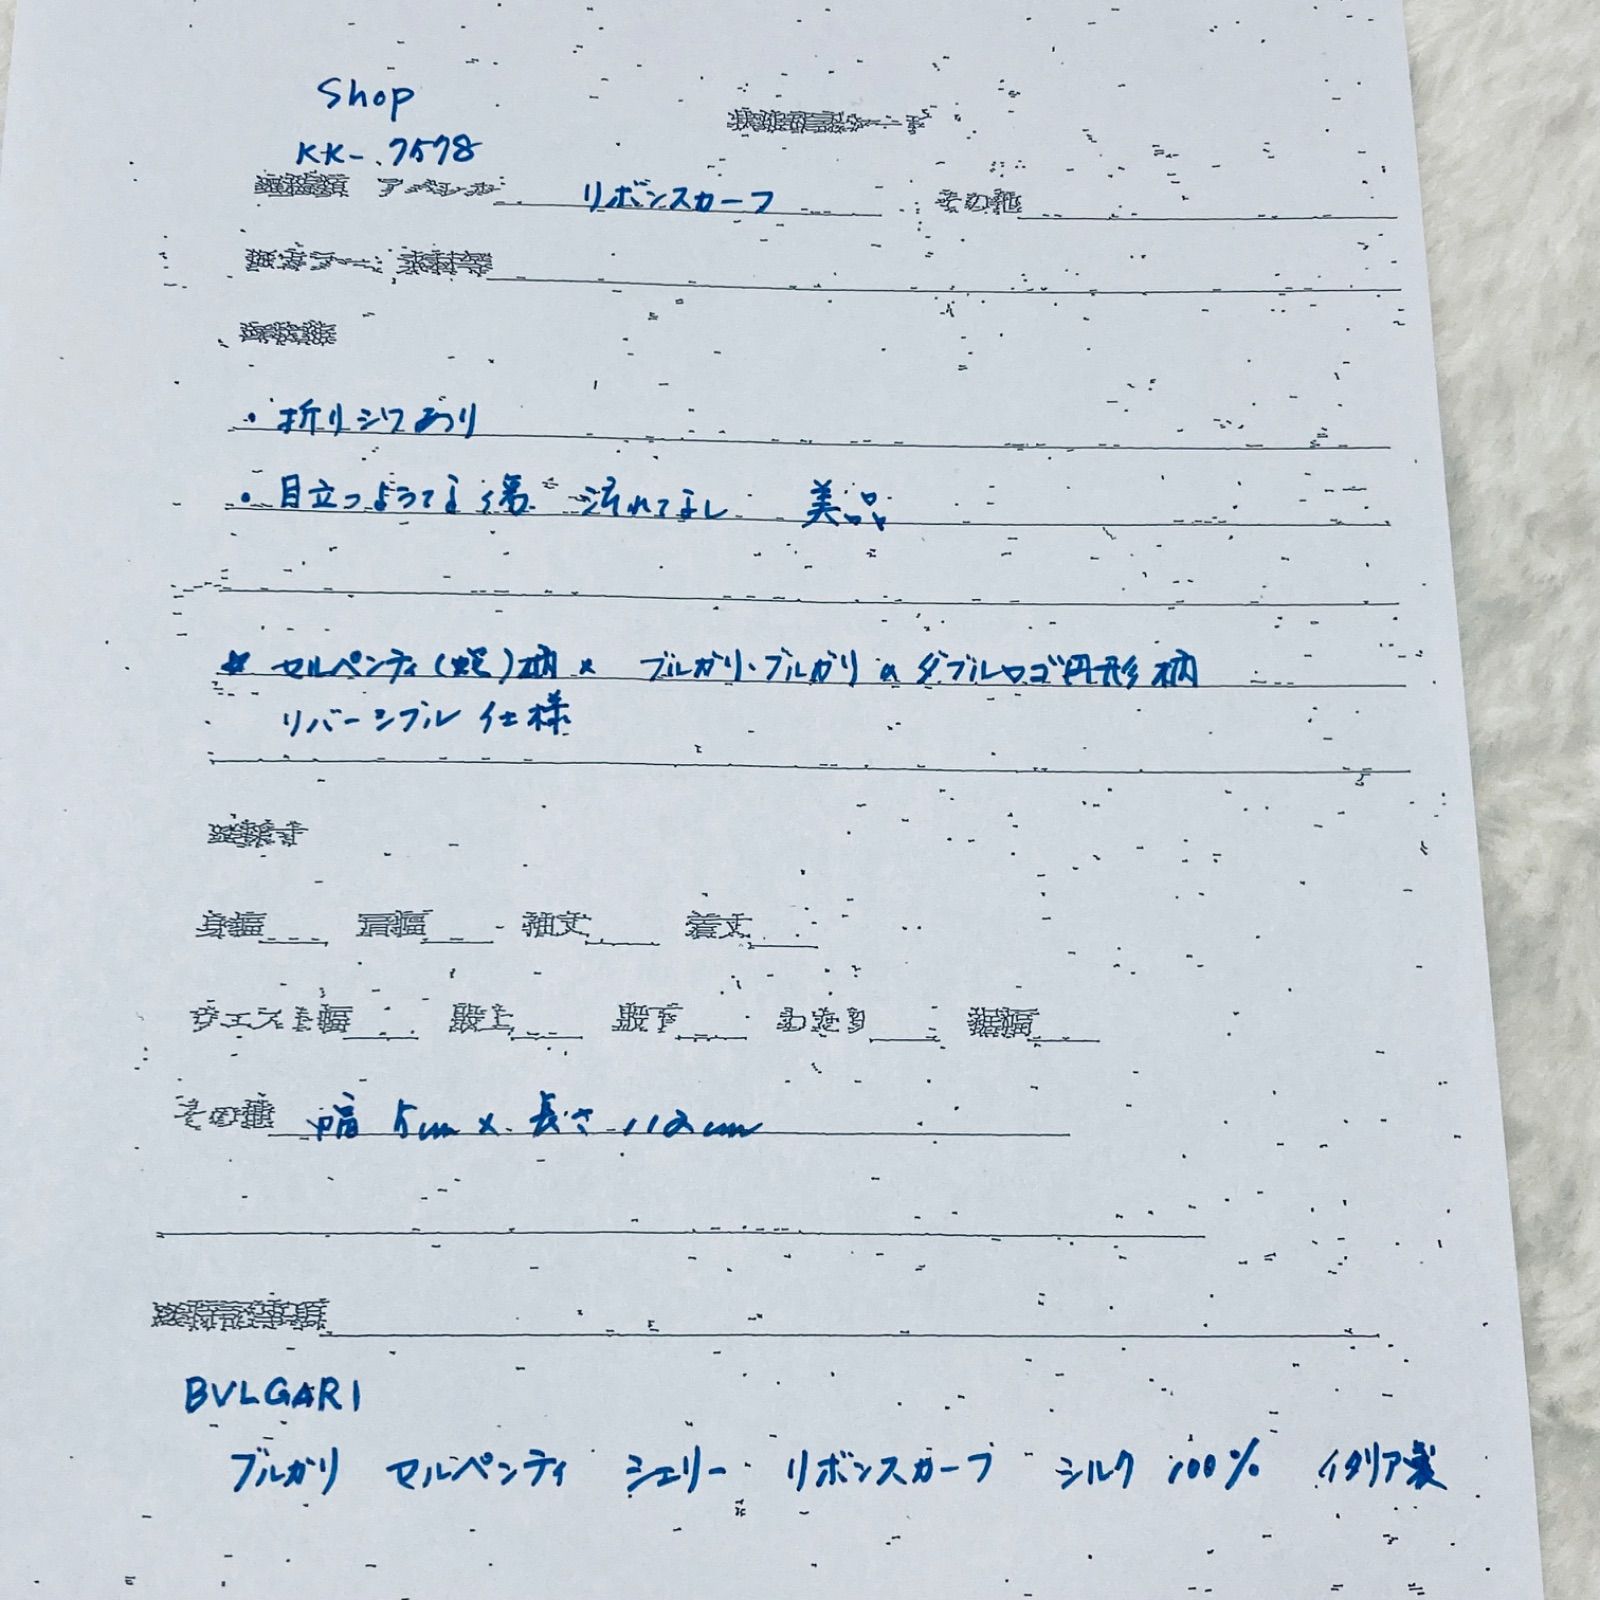 Shop
状態確認シート
KK-7578
アパレル リボンスカーフ その他
カラー・素材等
・折りシワあり
・目立つような傷 汚れなし 美品
★ セルペンティ(蛇)柄 × ブルガリ・ブルガリのダブルロゴ円形柄
リバーシブル仕様
身幅 肩幅 袖丈 着丈
ウエスト幅 股上 股下 わたり 裾幅
その他 幅 5cm × 長さ 112cm
BVLGARI
ブルガリ セルペンティ シェリー リボンスカーフ シルク 100% イタリア製